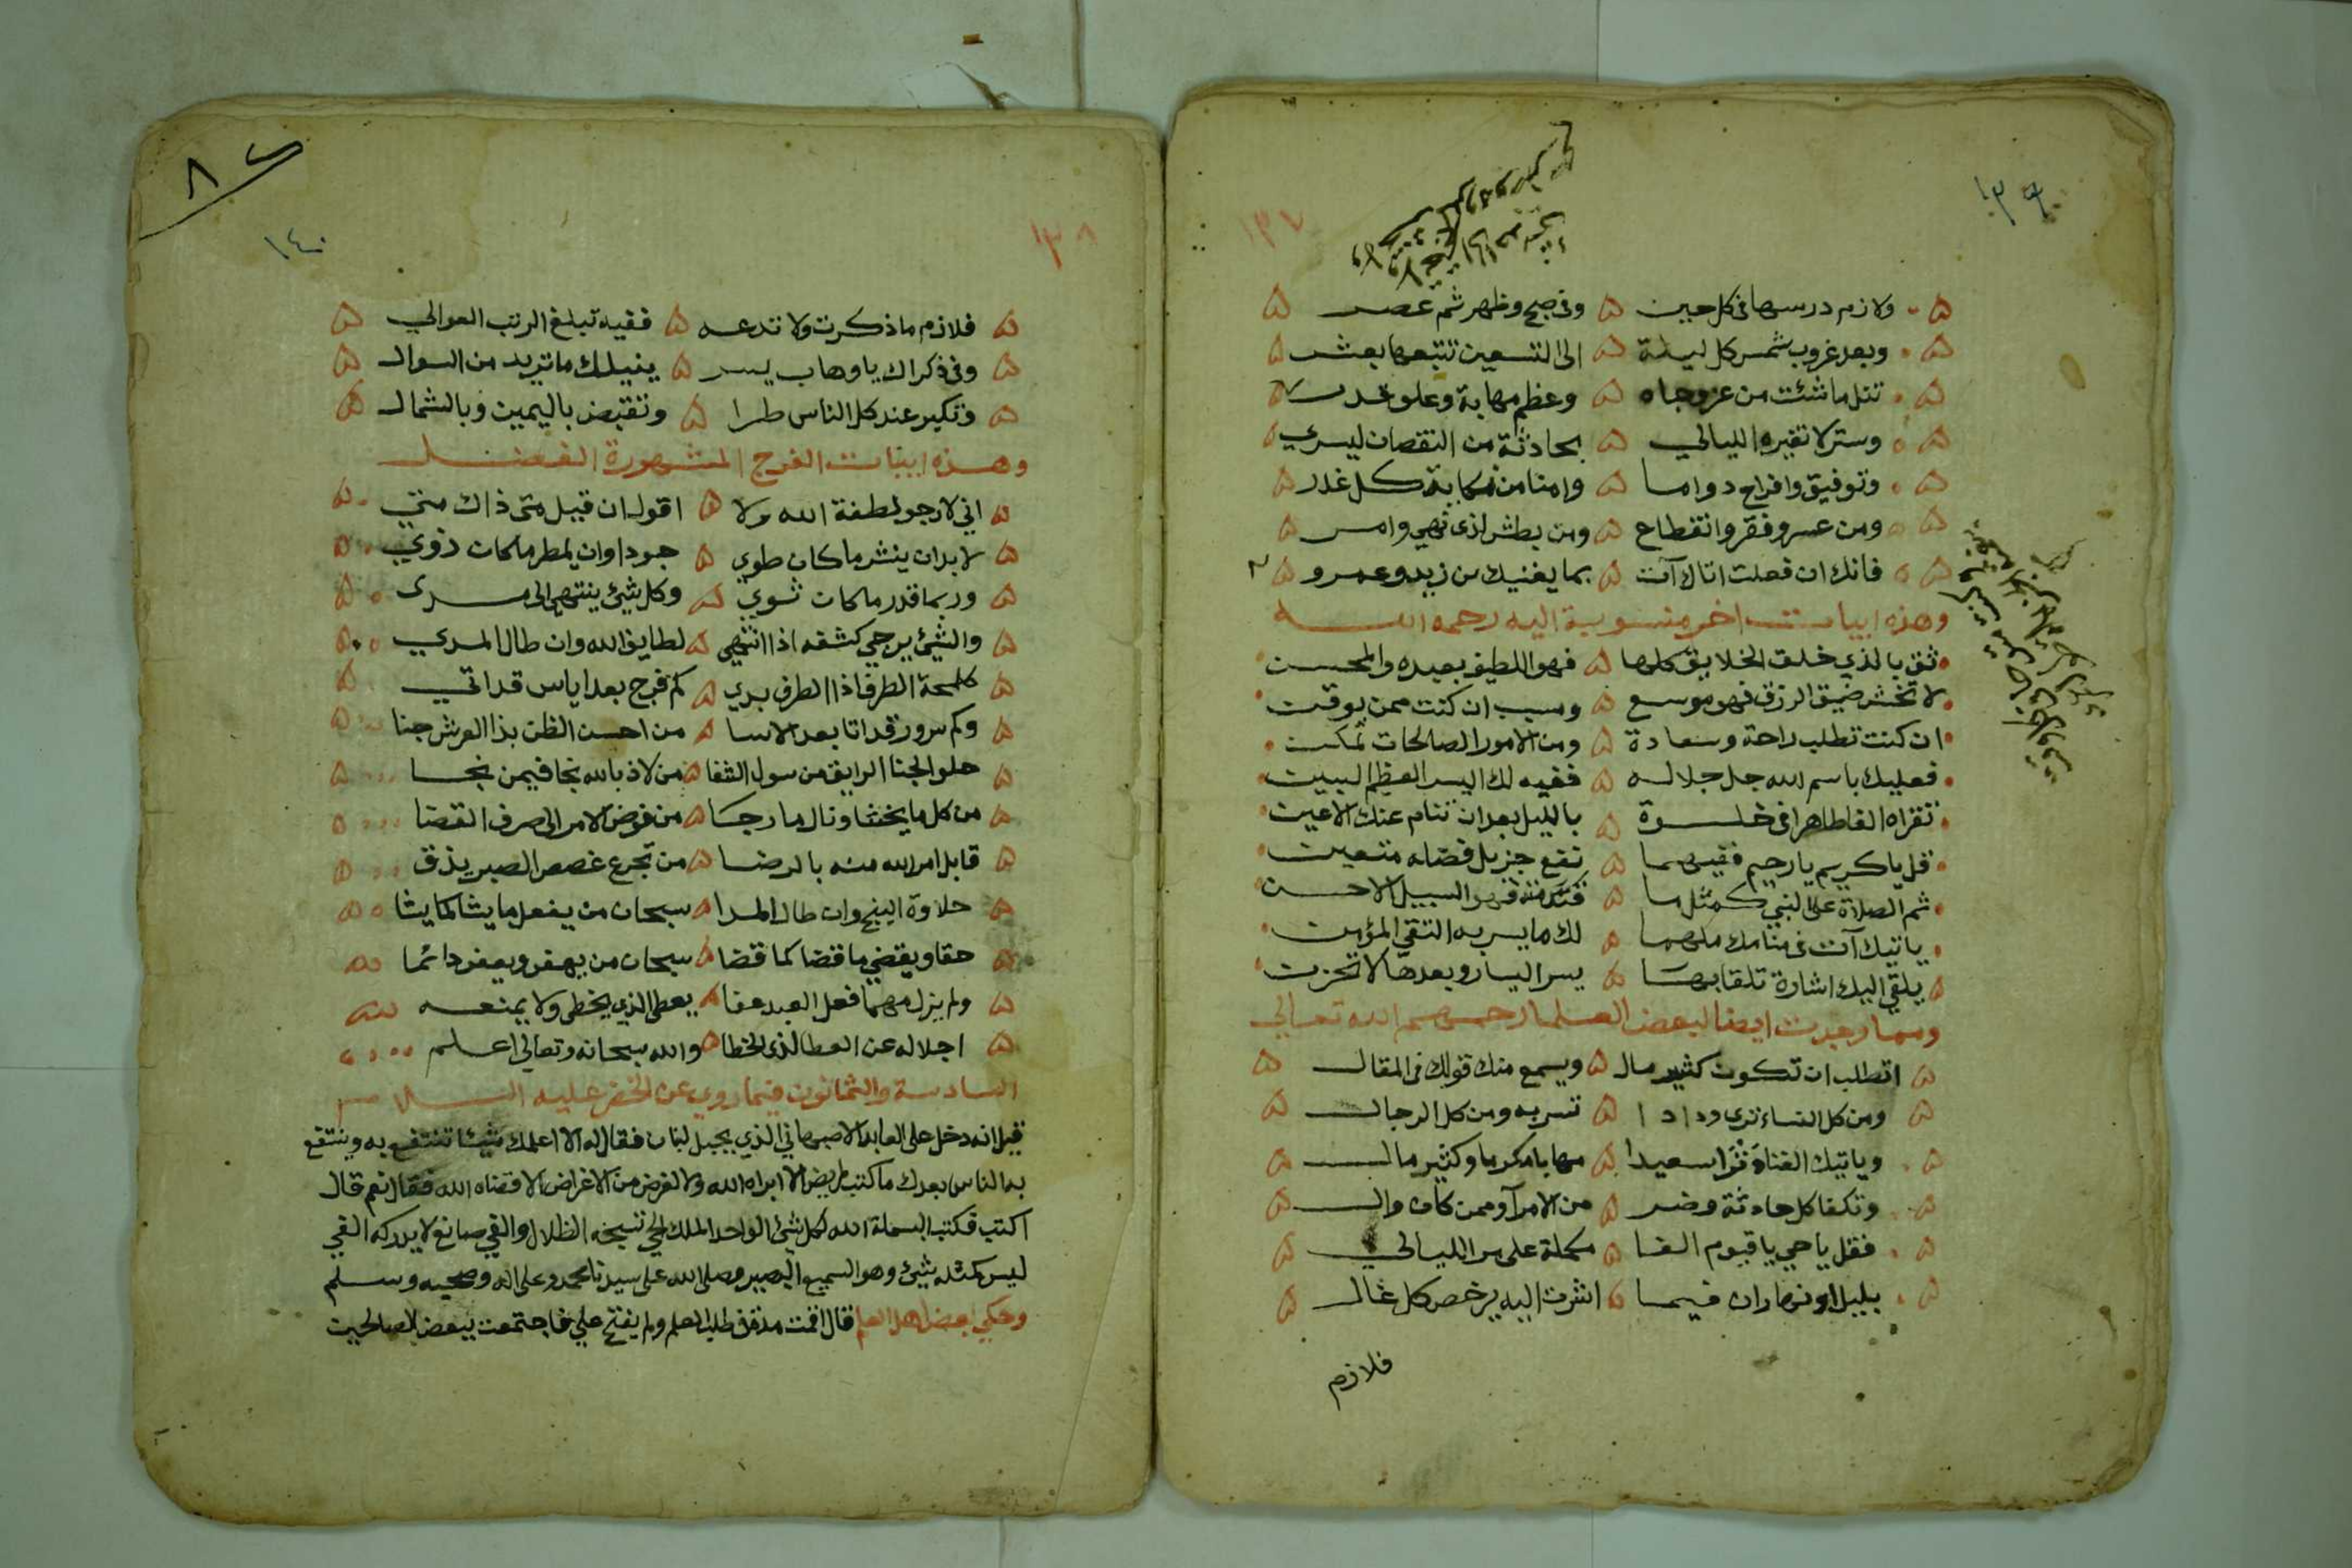 ١٣٩
١٣٧
ولازم درسها في كل حين ۵ وفي صبح وظهر ثم عصر
وبعد غروب شمس كل ليلة ۵ الى التسعين تتبعها بعشر
تنل ما شئت من عز وجاه ۵ وعظم مهابة وعلو قدر
وستر لا تغيره الليالي ۵ بحادثة من النقصان ليسري
وتوفيق وافراح دواما ۵ وامنا من نكاية كل غدر
ومن عسر وفقر وانقطاع ۵ ومن بطش لذي نهي وامر
فانك ان فعلت اتاك آت ۵ بما يغنيك من زيد وعمرو
وهذه ابيات اخر منسوبة اليه رحمه الله
ثق بالذي خلق الخلايق كلها ۵ فهو اللطيف بعبده والمحسن
لا تخش ضيق الرزق فهو موسع ۵ وسبب ان كنت ممن يوقن
ان كنت تطلب راحة وسعادة ۵ ومن الامور الصالحات تمكن
فعليك باسم الله جل جلاله ۵ ففيه لك اليسر العظيم البين
تقراه الفا طاهرا في خلوة ۵ بالليل بعد ان تنام عنك الاعين
قل يا كريم يا رحيم ففيهما ۵ نفع جزيل فضله متعين
ثم الصلاة على النبي كمثل ما ۵ فهو السبيل الاحسن
ياتيك آت في منامك ملهما ۵ لك ما يسر به التقي المؤمن
يلقي اليك اشارة تلقا بها ۵ يسر اليسار وبعدها لا تحزن
ومما وجدت ايضا لبعض العلما رحمهم الله تعالي
اتطلب ان تكون كثير مال ۵ ويسمع منك قولك في المقال
ومن كل النساء ترى ودادا ۵ تسر به ومن كل الرجال
وياتيك الغناء وترا سعيدا ۵ مهابا مكرما وكثير مال
وتكفا كل حادثة وضر ۵ من الامرآ وممن كان وال
فقل يا حي يا قيوم الفا ۵ مكملة على مر الليالي
بليل او نهار ان فيما ۵ اشرت اليه يرخص كل غال
فلازم
١٤٠
١٣٨
فلازم ما ذكرت ولا تدعه ۵ ففيه تبلغ الرتب العوالي
وفي ذكراك يا وهاب يسر ۵ ينيلك ما تريد من السوال
وتكبر عند كل الناس طرا ۵ وتقبض باليمين وبالشمال
وهذه ابيات الفرج المشهورة الفضل
اني لارجو لطفة الله ولا ۵ اقول ان قيل متى ذاك متي
لا بد ان ينشر ما كان طوي ۵ جودا وان يمطر ما كان ذوي
وربما قدر ما كان ثوي ۵ وكل شيئ ينتهي الى مدى
والشيئ يرجي كشفه اذا انتهي ۵ لطايف الله وان طال المدي
كلمحة الطرف اذا الطرف بدي ۵ كم فرج بعد اياس قد اتي
وكم سرور قد اتا بعد الاسا ۵ من احسن الظن بذا العرش جنا
حلو الجنا الرايق من سول الثفا ۵ من لاذ بالله نجا فيمن نجا
من كل ما يخشا ونال ما رجا ۵ من فوض الامر الى صرف القضا
قابل امر الله منه بالرضا ۵ من تجرع غصص الصبر يذق
حلاوة الينج وان طال المدا ۵ سبحان من يفعل ما يشا كما يشا
حقا ويقضي ما قضا كما قضا ۵ سبحان من يهفو ويعفو دائما
ولم يزل مهما فعل العبد عفا ۵ يعطي الذي يخطي ولا يمنعه
اجلاله عن العطا لذي الخطا ۵ والله سبحانه وتعالي اعلم
السادسة والثمانون فيما روي عن الخضر عليه السلام
قيل انه دخل على العابد الاصبهاني الذي بجبل لبنان فقال له الا اعلمك شيئا تنتفع به وينتفع
به الناس بعدك ما كتب لمريض الا ابراه الله ولا لغرض من الاغراض الا قضاه الله فقال نعم قال
اكتب فكتب البسملة الله لكل شيئ الواحد الملك الحي تسبحه الظلال والفي صانع لا يدركه الفي
ليس كمثله شيئ وهو السميع البصير وصلى الله على سيدنا محمد وعلى اله وصحبه وسلم
وحكي بعض اهل العلم قال اقمت مدة في طلب العلم ولم يفتح علي فاجتمعت ببعض الصالحين